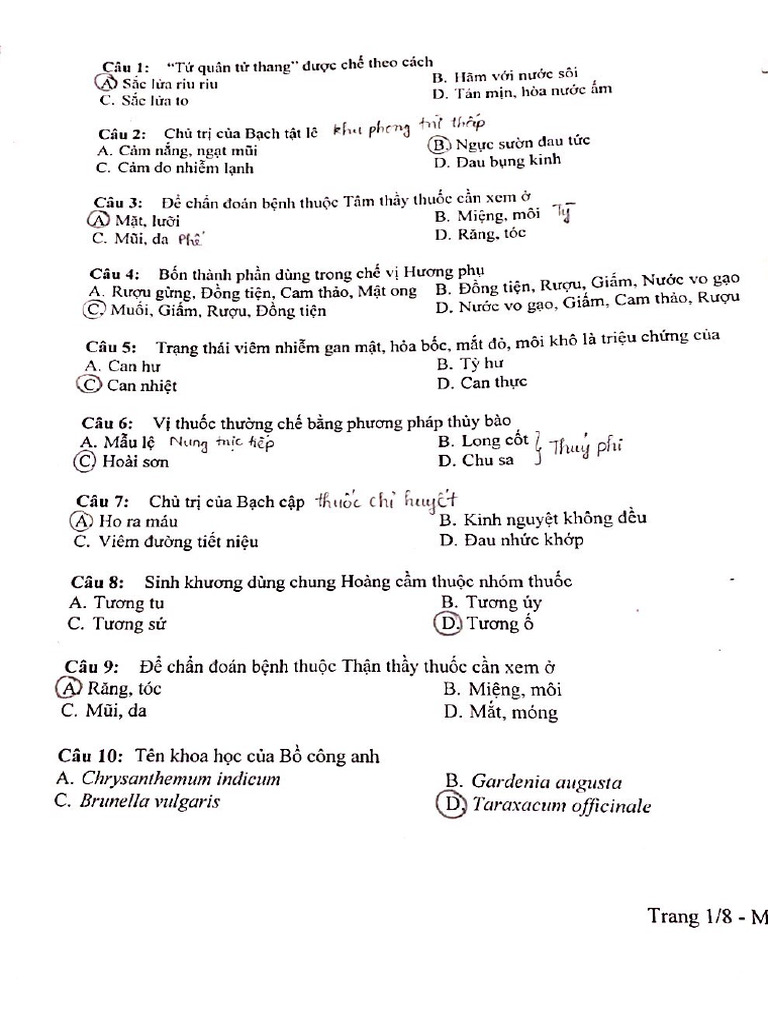 Câu 1: "Tứ quân tử thang" được chế theo cách
A. Sắc lửa riu riu B. Hãm với nước sôi
C. Sắc lửa to D. Tán mịn, hòa nước ấm
Câu 2: Chủ trị của Bạch tật lê khu phong trừ thấp
A. Cảm nắng, ngạt mũi B. Ngực sườn đau tức
C. Cảm do nhiễm lạnh D. Đau bụng kinh
Câu 3: Để chẩn đoán bệnh thuộc Tâm thầy thuốc cần xem ở
A. Mặt, lưỡi B. Miệng, môi Tỳ
C. Mũi, da Phế D. Răng, tóc
Câu 4: Bốn thành phần dùng trong chế vị Hương phụ
A. Rượu gừng, Đồng tiện, Cam thảo, Mật ong B. Đồng tiện, Rượu, Giấm, Nước vo gạo
C. Muối, Giấm, Rượu, Đồng tiện D. Nước vo gạo, Giấm, Cam thảo, Rượu
Câu 5: Trạng thái viêm nhiễm gan mật, hỏa bốc, mắt đỏ, môi khô là triệu chứng của
A. Can hư B. Tỳ hư
C. Can nhiệt D. Can thực
Câu 6: Vị thuốc thường chế bằng phương pháp thủy bào
A. Mẫu lệ Nung trực tiếp B. Long cốt Thuỷ phi
C. Hoài sơn D. Chu sa
Câu 7: Chủ trị của Bạch cập thuốc chỉ huyết
A. Ho ra máu B. Kinh nguyệt không đều
C. Viêm đường tiết niệu D. Đau nhức khớp
Câu 8: Sinh khương dùng chung Hoàng cầm thuộc nhóm thuốc
A. Tương tu B. Tương úy
C. Tương sứ D. Tương ố
Câu 9: Để chẩn đoán bệnh thuộc Thận thầy thuốc cần xem ở
A. Răng, tóc B. Miệng, môi
C. Mũi, da D. Mắt, móng
Câu 10: Tên khoa học của Bồ công anh
A. Chrysanthemum indicum B. Gardenia augusta
C. Brunella vulgaris D. Taraxacum officinale
Trang 1/8 - M